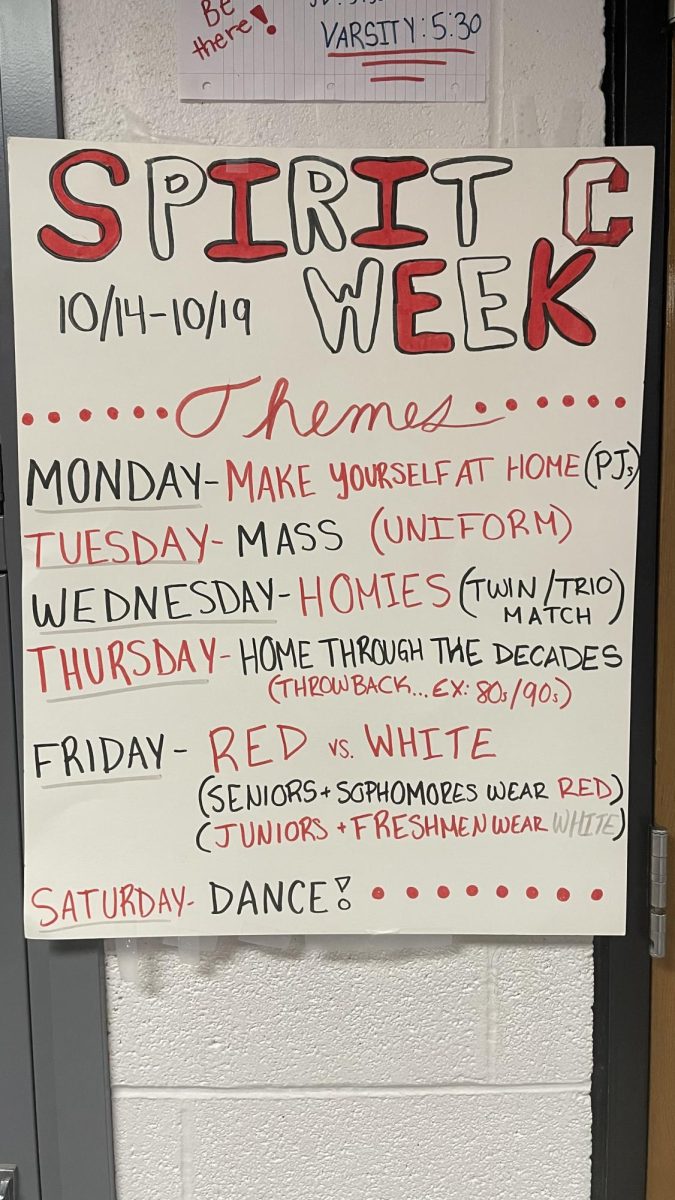 Be
there!
VARSITY: 5:30
SPIRIT C
WEEK
10/14-10/19
Themes
MONDAY- MAKE YOURSELF AT HOME (PJs)
TUESDAY- MASS (UNIFORM)
WEDNESDAY- HOMIES (TWIN/TRIO
MATCH)
THURSDAY- HOME THROUGH THE DECADES
(THROWBACK... EX: 80s/90s)
FRIDAY- RED VS. WHITE
(SENIORS + SOPHOMORES WEAR RED)
(JUNIORS + FRESHMEN WEAR WHITE)
SATURDAY- DANCE!